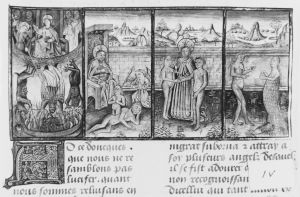 De doncques
que nous ne re
samblons pas
lucifer. quant
nous sommes reluisans en
migrat subona & attray a
soy pluseurs angels desauel
il se fist adourer
non recongnoissan
Ducellui qui tant
IV